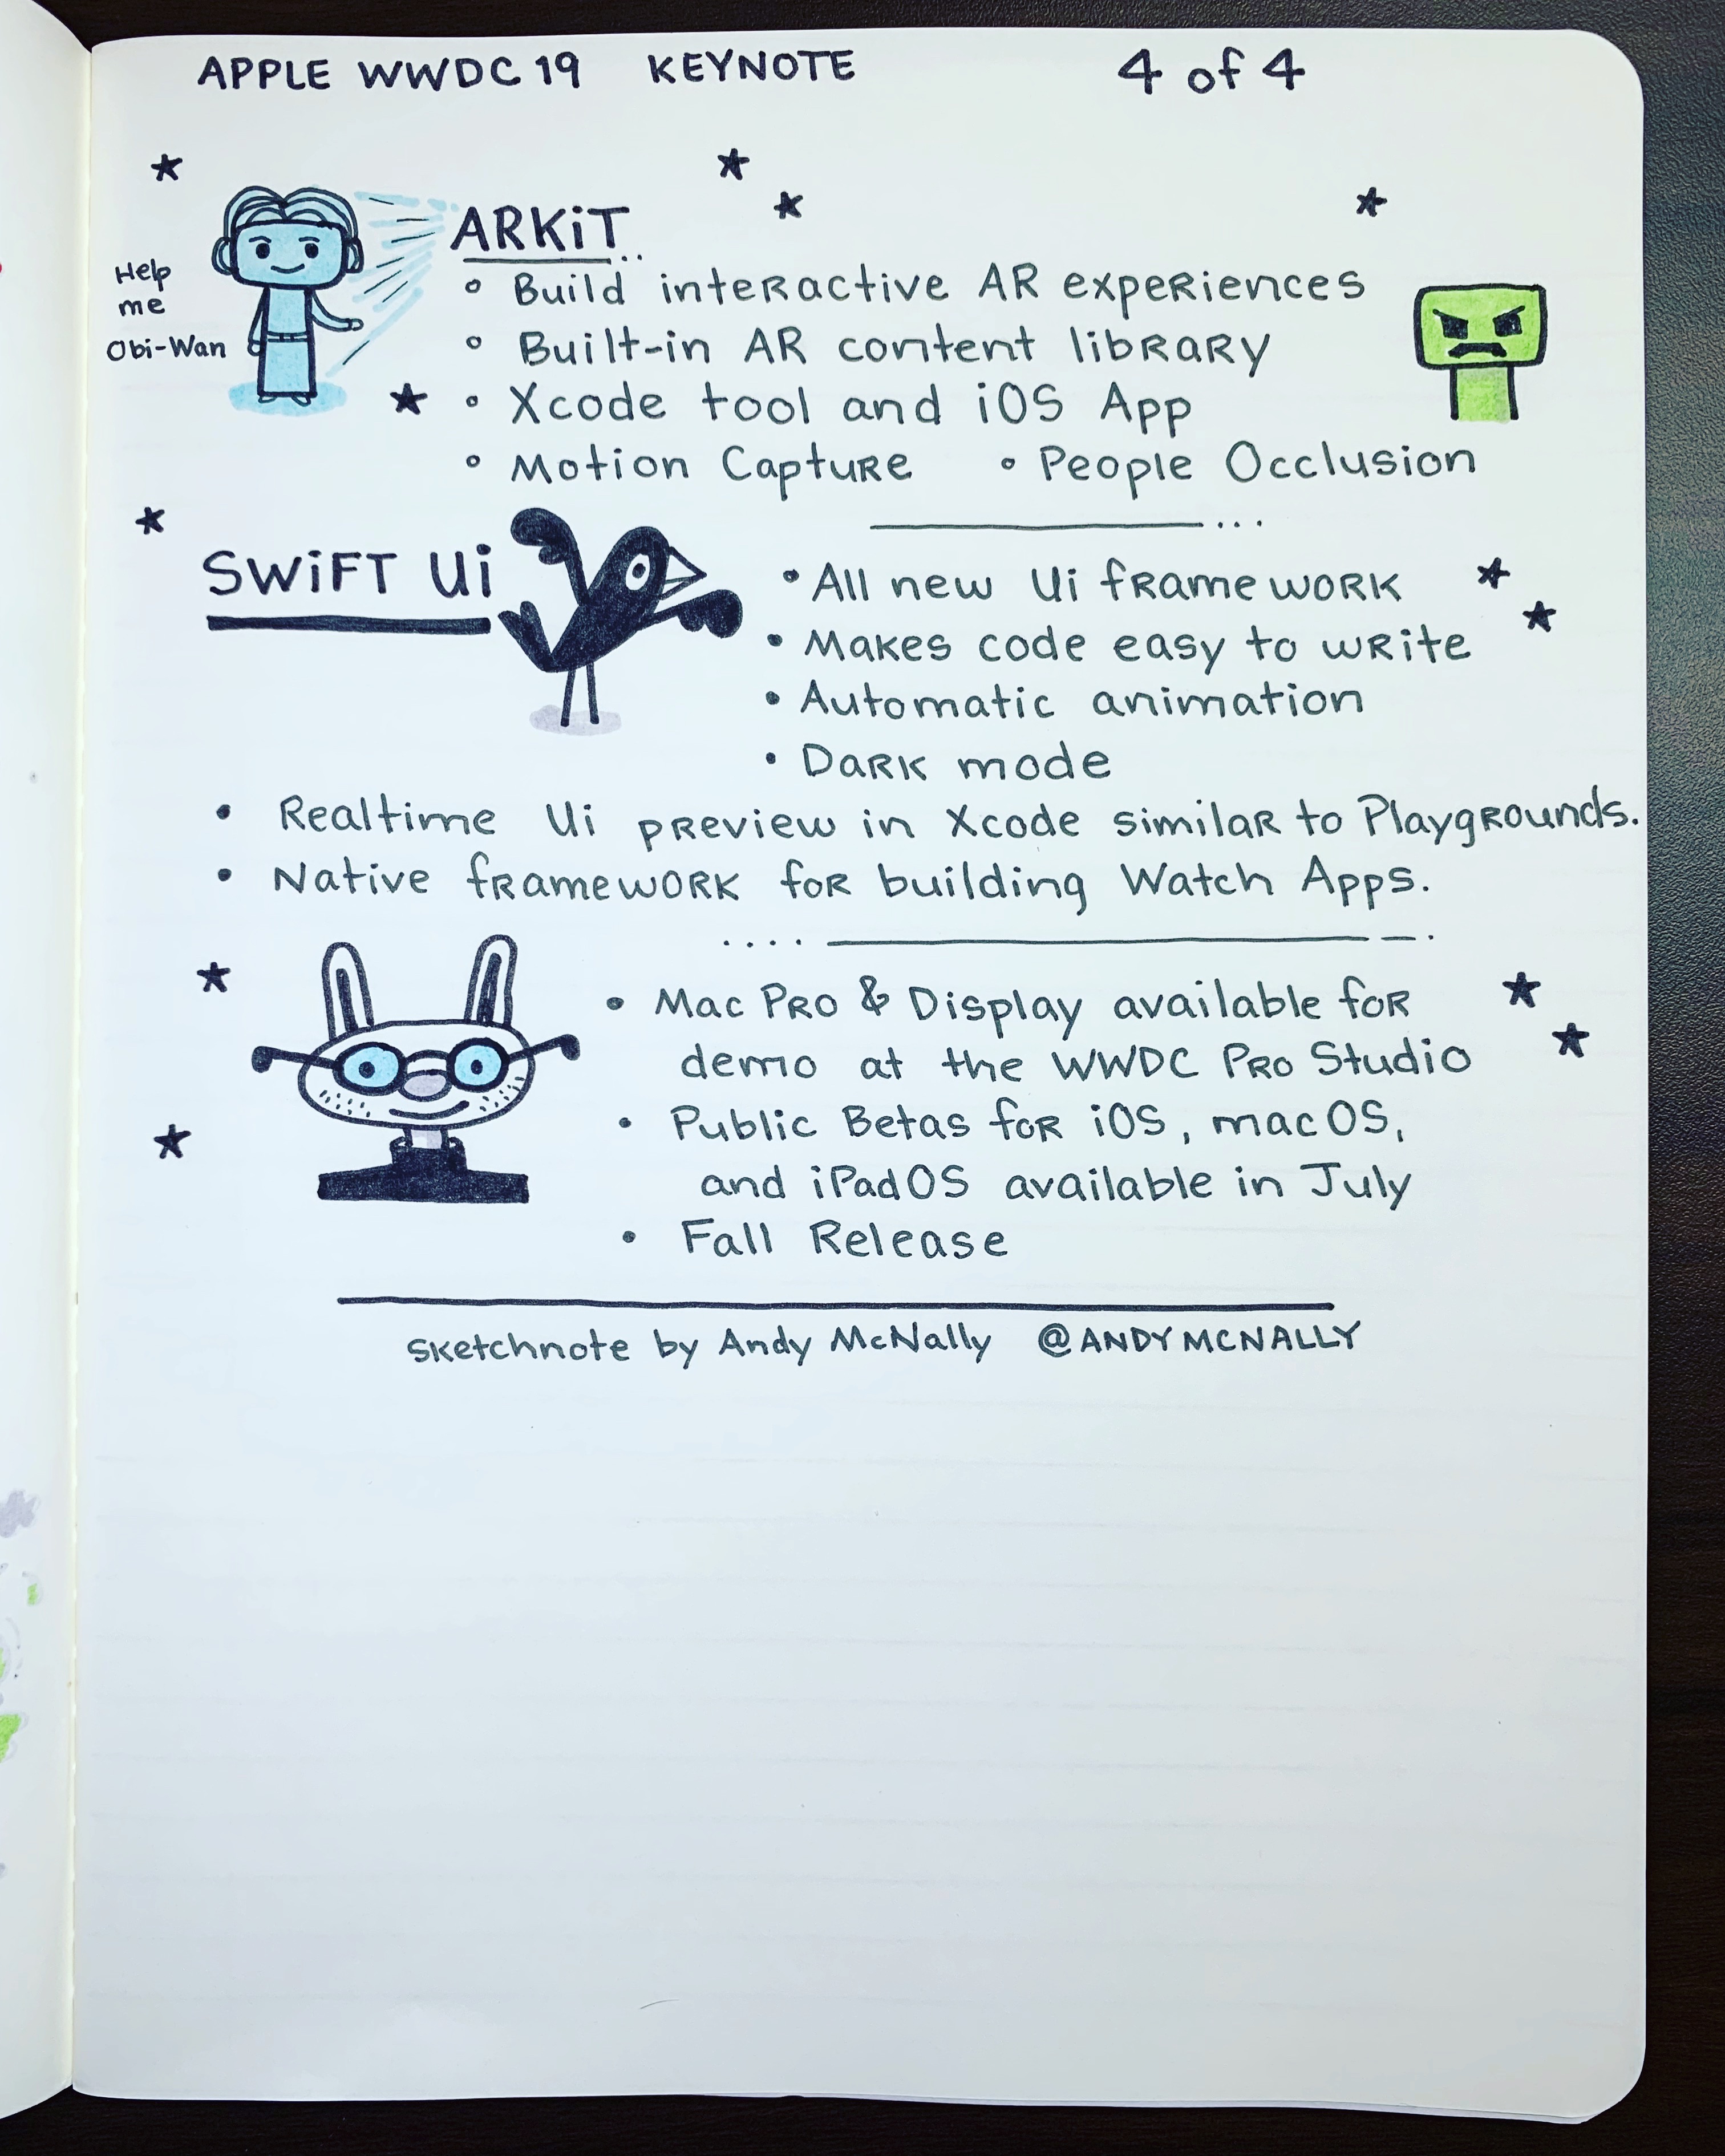 APPLE WWDC 19 KEYNOTE 4 of 4
ARKiT
Help
me
Obi-Wan
Build interactive AR experiences
Built-in AR content library
Xcode tool and iOS App
Motion Capture
People Occlusion
SWiFT Ui
All new Ui framework
Makes code easy to write
Automatic animation
Dark mode
Realtime Ui preview in Xcode similar to Playgrounds.
Native framework for building Watch Apps.
Mac Pro & Display available for
demo at the WWDC Pro Studio
Public Betas for iOS, macOS,
and iPadOS available in July
Fall Release
Sketchnote by Andy McNally @ANDYMCNALLY